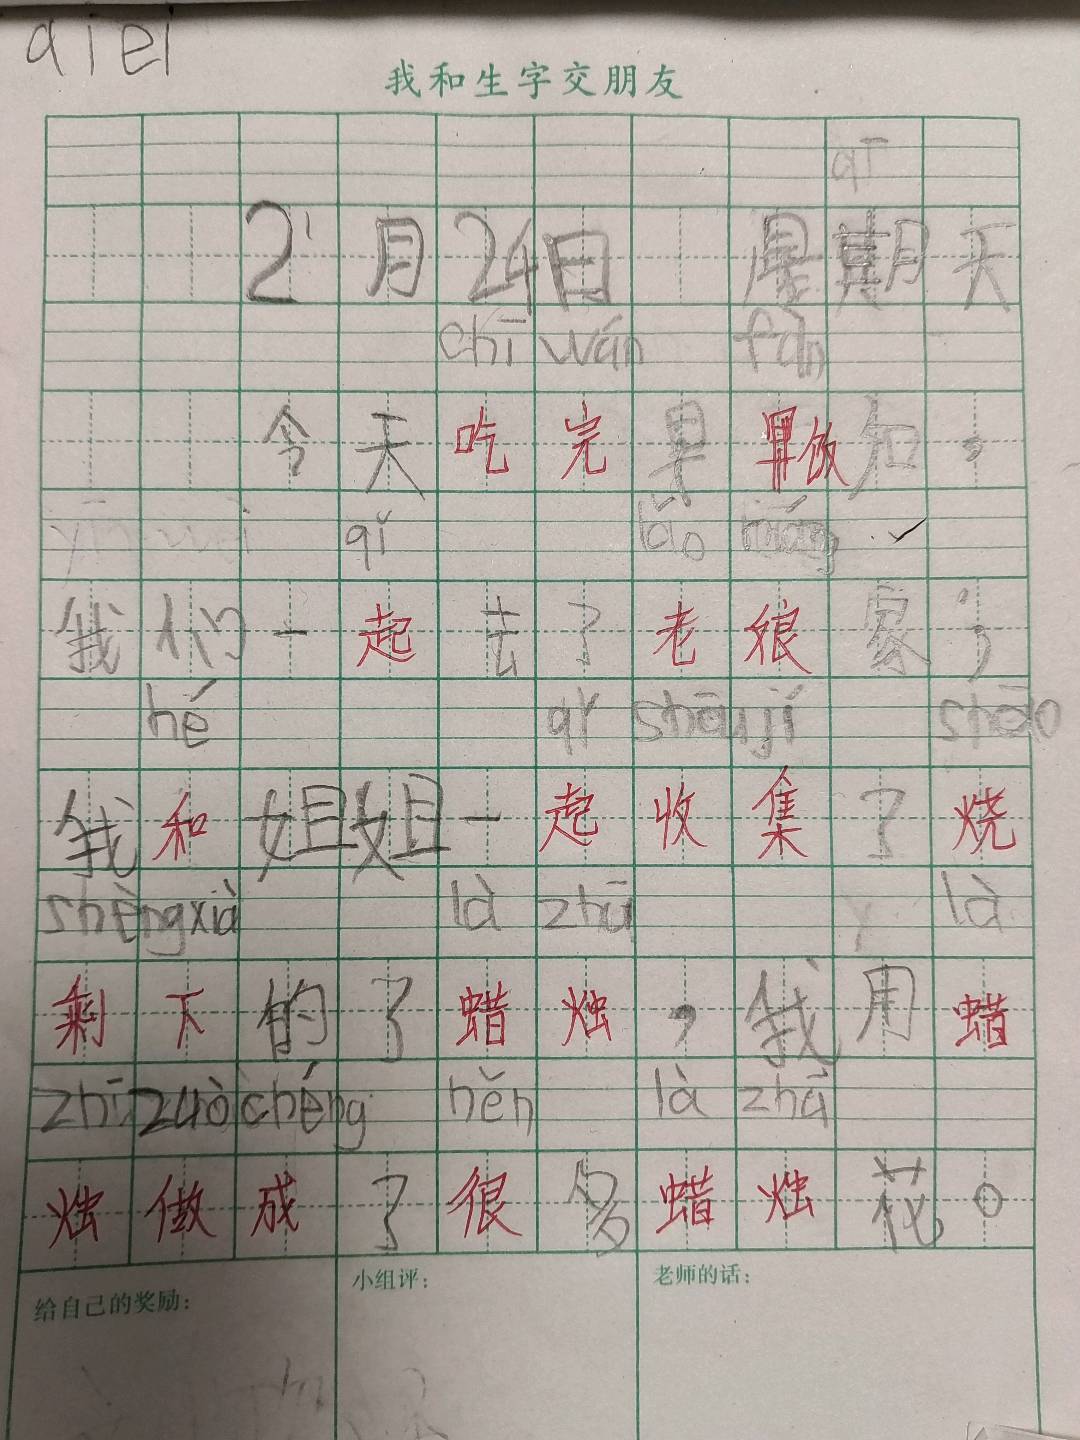 qiei
我和生字交朋友
qī
2月24日 星期天
chī wán fàn
今天吃完早算饭知，
yīn wèi qǐ lǎo niáng
我们一起去了老娘家；
hé qǐ shōu jí shāo
我和姐姐一起收集了烧
shèng xià là zhú là
剩下的了蜡烛，我用蜡
zhī zuò chéng hěn là zhú
烛做成了很多蜡烛花。
给自己的奖励： 小组评： 老师的话：